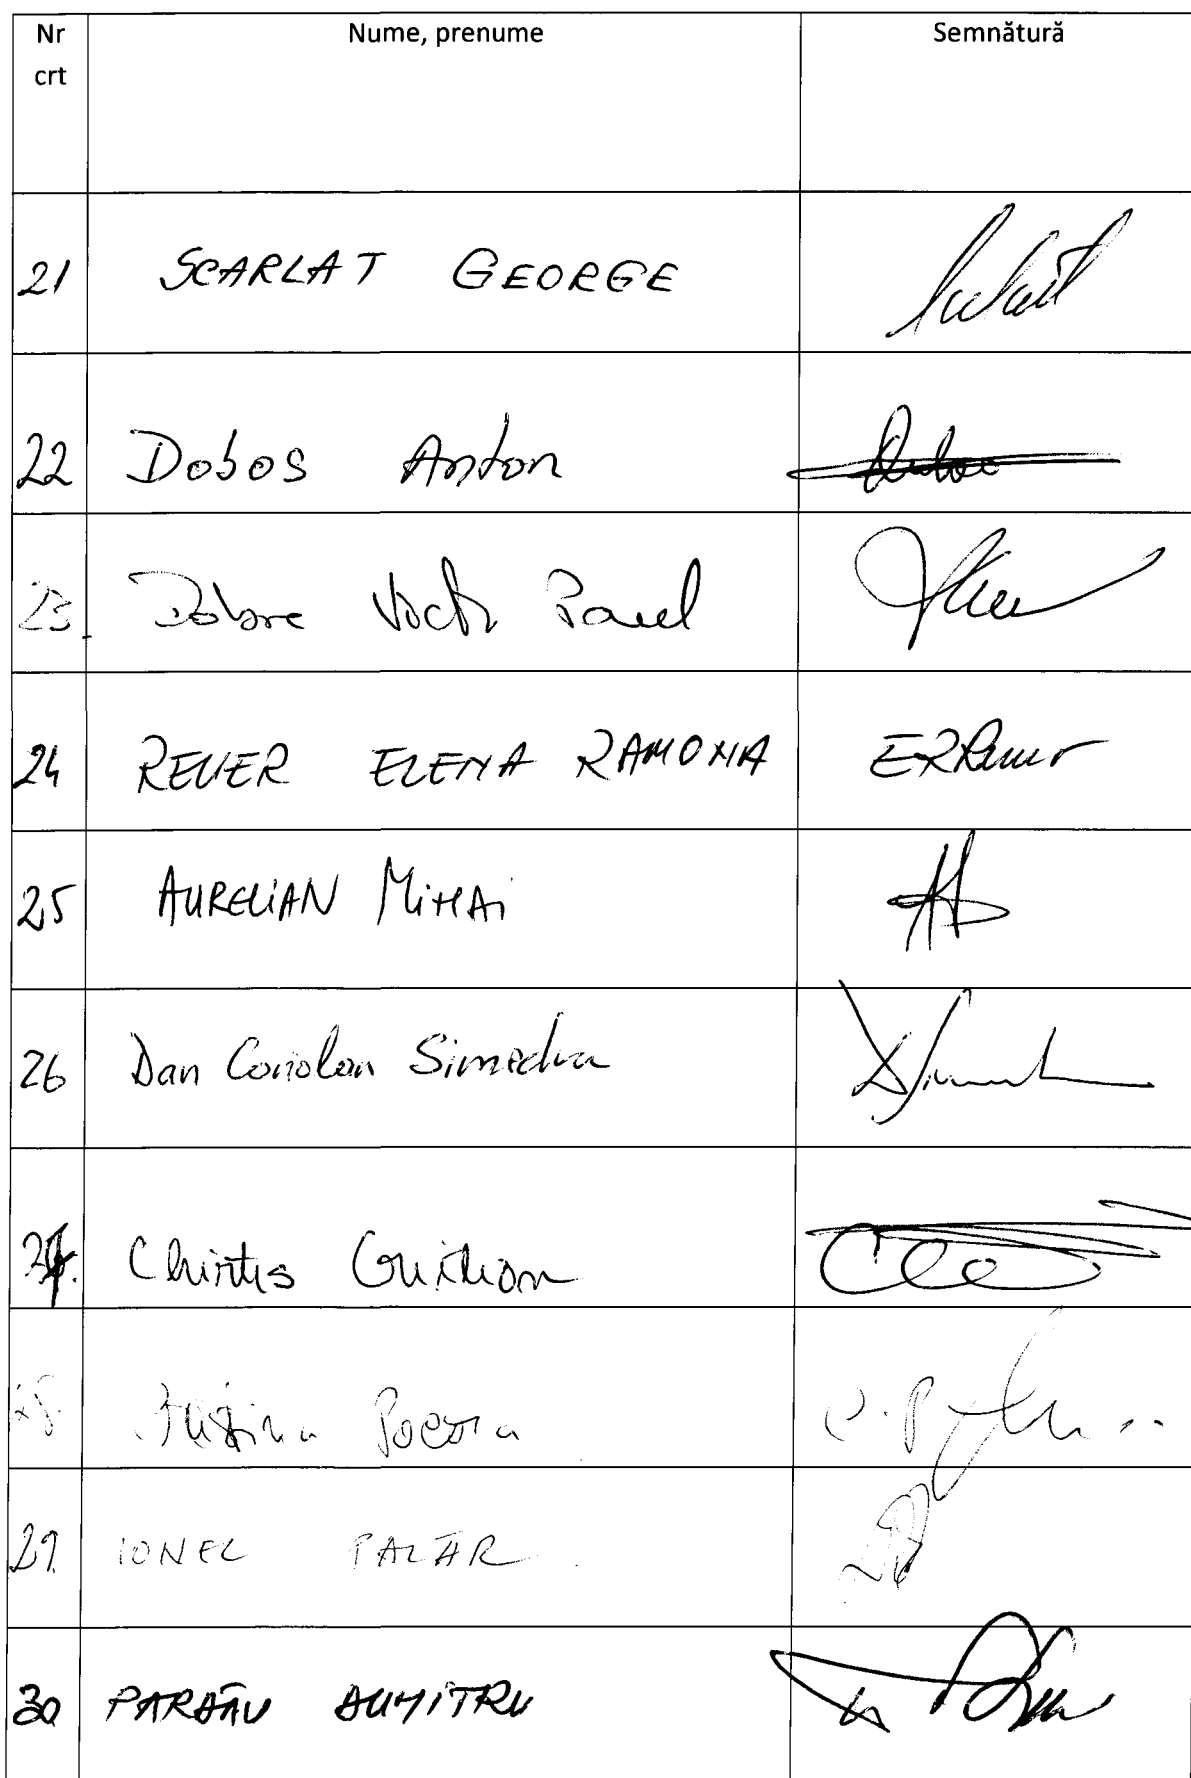 Nr crt Nume, prenume Semnătură
21 SCARLAT GEORGE
22 Dobos Anton
23. Dobre Victor Paul
24 REVER ELENA RAMONA
25 AURELIAN MIHAI
26 Dan Coriolan Simedru
27. Chirteș
28. Pocora
29. IONEL PALĂR
30 PARDĂU DUMITRU